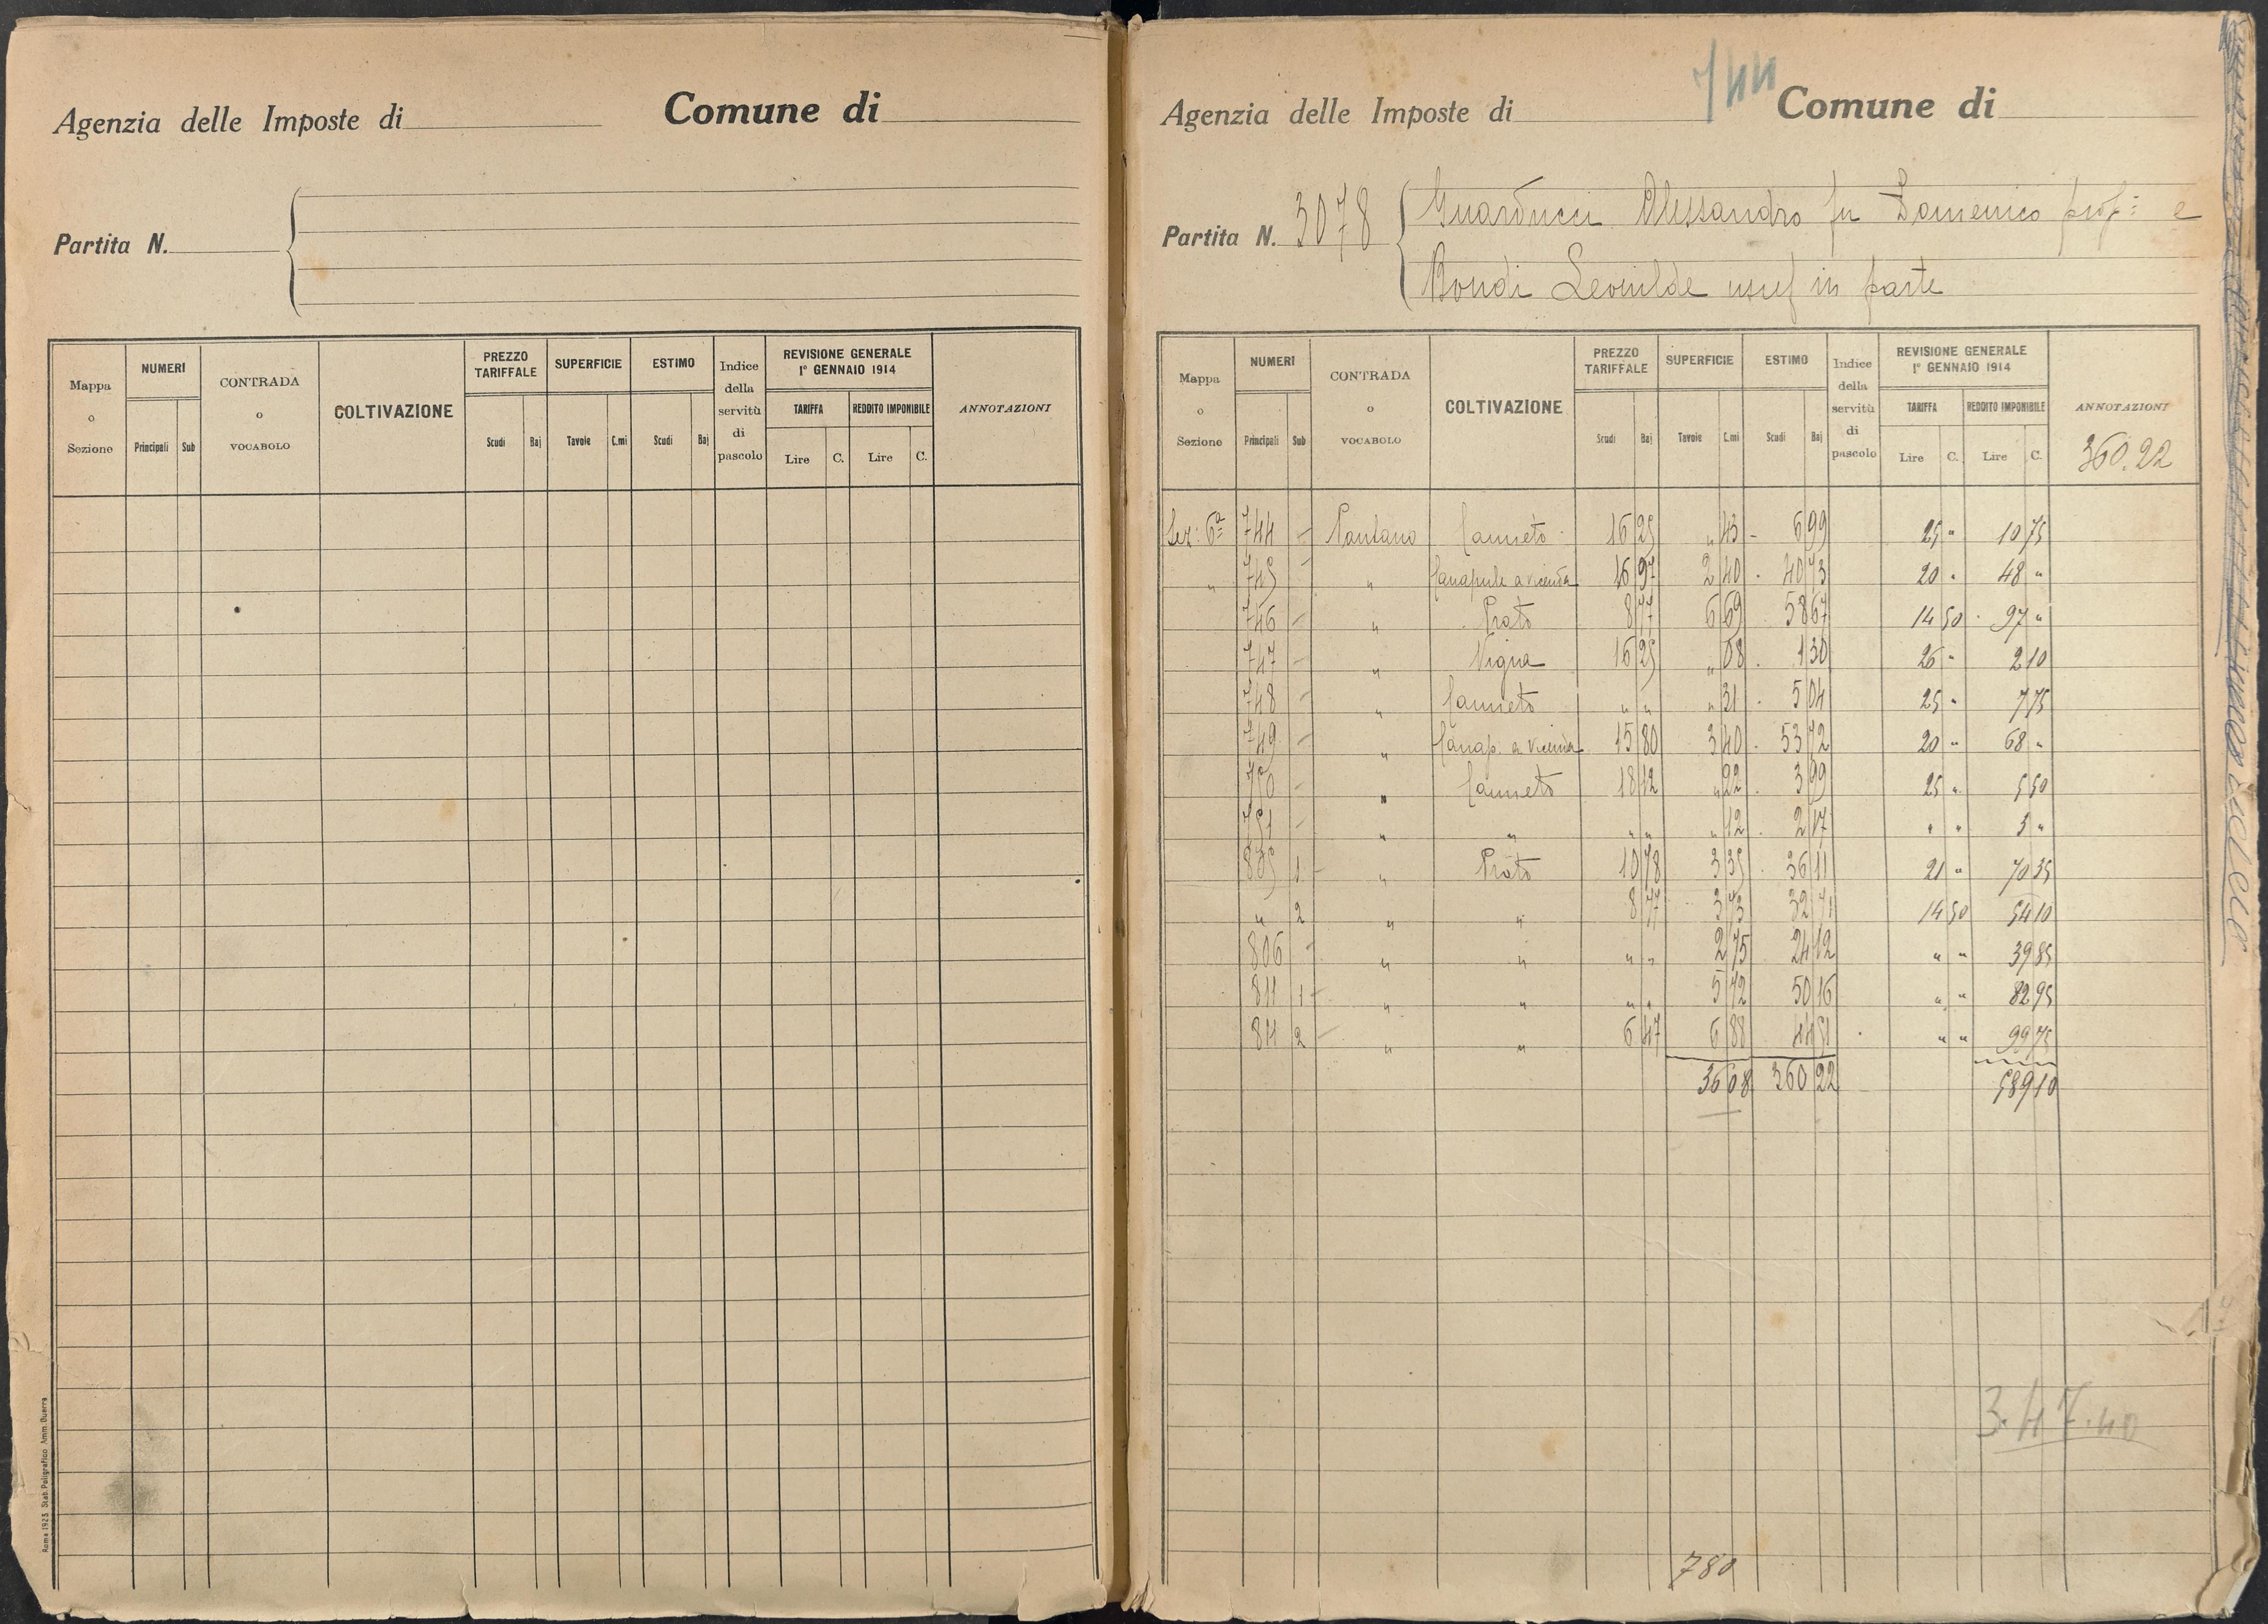 Agenzia delle Imposte di Comune di
Partita N.
Mappa o Sezione NUMERI Principali Sub CONTRADA o VOCABOLO COLTIVAZIONE PREZZO TARIFFALE Scudi Baj SUPERFICIE Tavole C.mi ESTIMO Scudi Baj Indice della servitù di pascolo REVISIONE GENERALE 1° GENNAIO 1914 TARIFFA Lire C. REDDITO IMPONIBILE Lire C. ANNOTAZIONI
Roma 1923 Stab. Poligrafico Amm. Guerra
744
Agenzia delle Imposte di Comune di
Partita N. 3078 Guarducci Alessandro fu Domenico prop: e
Bondi Leonilde usuf in parte
Mappa o Sezione NUMERI Principali Sub CONTRADA o VOCABOLO COLTIVAZIONE PREZZO TARIFFALE Scudi Baj SUPERFICIE Tavole C.mi ESTIMO Scudi Baj Indice della servitù di pascolo REVISIONE GENERALE 1° GENNAIO 1914 TARIFFA Lire C. REDDITO IMPONIBILE Lire C. ANNOTAZIONI
360.22
Sez: 6ª 744 - Pantano Canneto 16 25 " 43 - 6 99 25 " 10 75
" 745 - " Canapule a vicenda 16 97 2 40 40 73 20 " 48 "
746 - " Prato 8 77 6 69 58 67 14 50 97 "
747 - " Vigna 16 25 " 08 1 30 26 " 2 10
748 - " Canneto " " " 31 5 04 25 " 7 75
749 - " Canap. a vicenda 15 80 3 40 53 72 20 " 68 "
750 - " Canneto 18 12 " 22 3 99 25 " 5 50
751 - " " " " " 12 2 17 " " 3 "
805 1 - " Prato 10 78 3 35 36 11 21 " 70 35
" 2 " " 8 77 3 73 32 71 14 50 54 10
806 - " " " " 2 75 24 12 " " 39 85
811 1 - " " " " 5 72 50 16 " " 82 95
811 2 - " " 6 47 6 88 44 51 " " 99 75
36 08 360 22 589 10
3.47.40
780